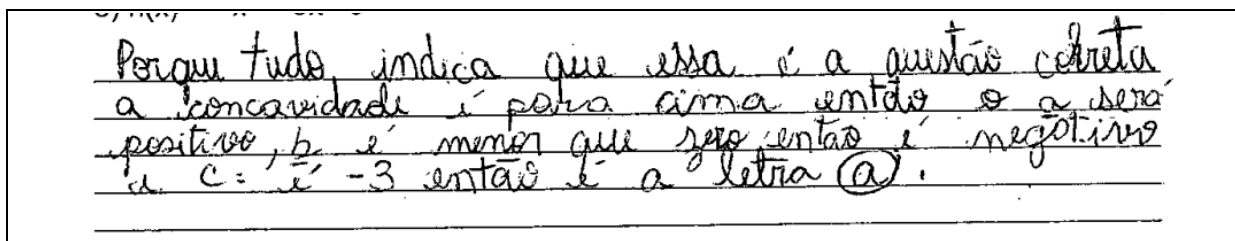 Porque tudo, indica que essa é a questão correta
a concavidade é para cima então o a será
positivo, b é menor que zero então é negativo
e c = é -3 então é a letra a.